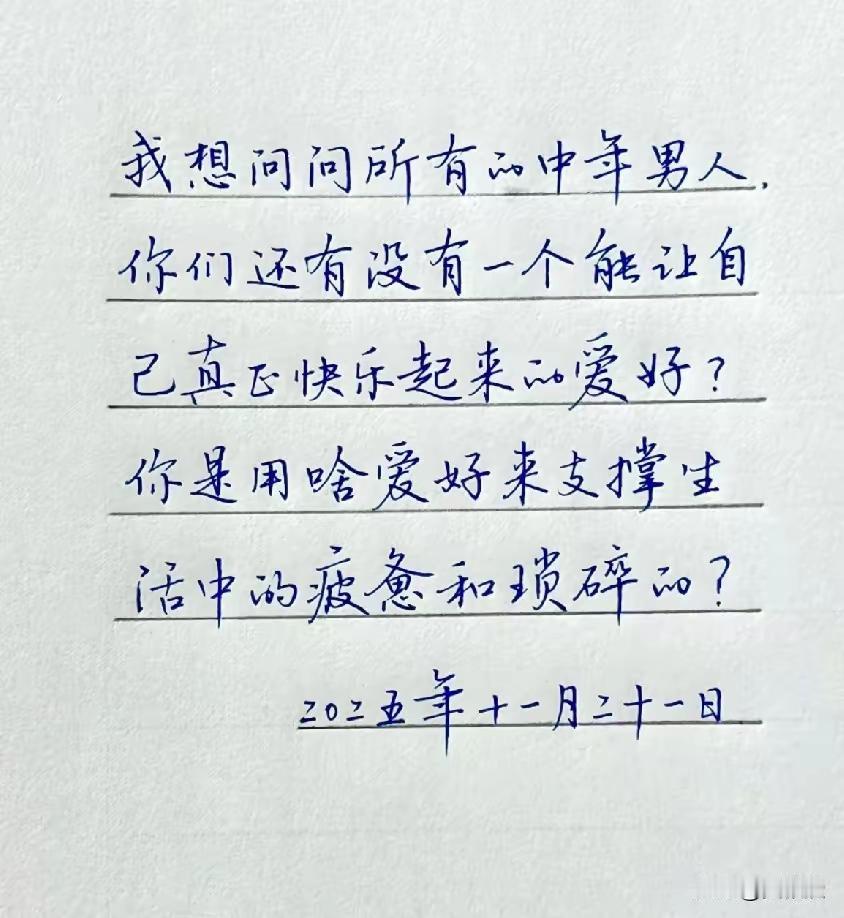 我想问问所有的中年男人，
你们还有没有一个能让自
己真正快乐起来的爱好？
你是用啥爱好来支撑生
活中的疲惫和琐碎的？
二〇二五年十一月二十一日